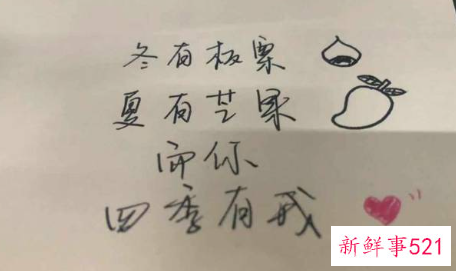 冬有板栗
夏有芒果
而你
四季有我
新鲜事521